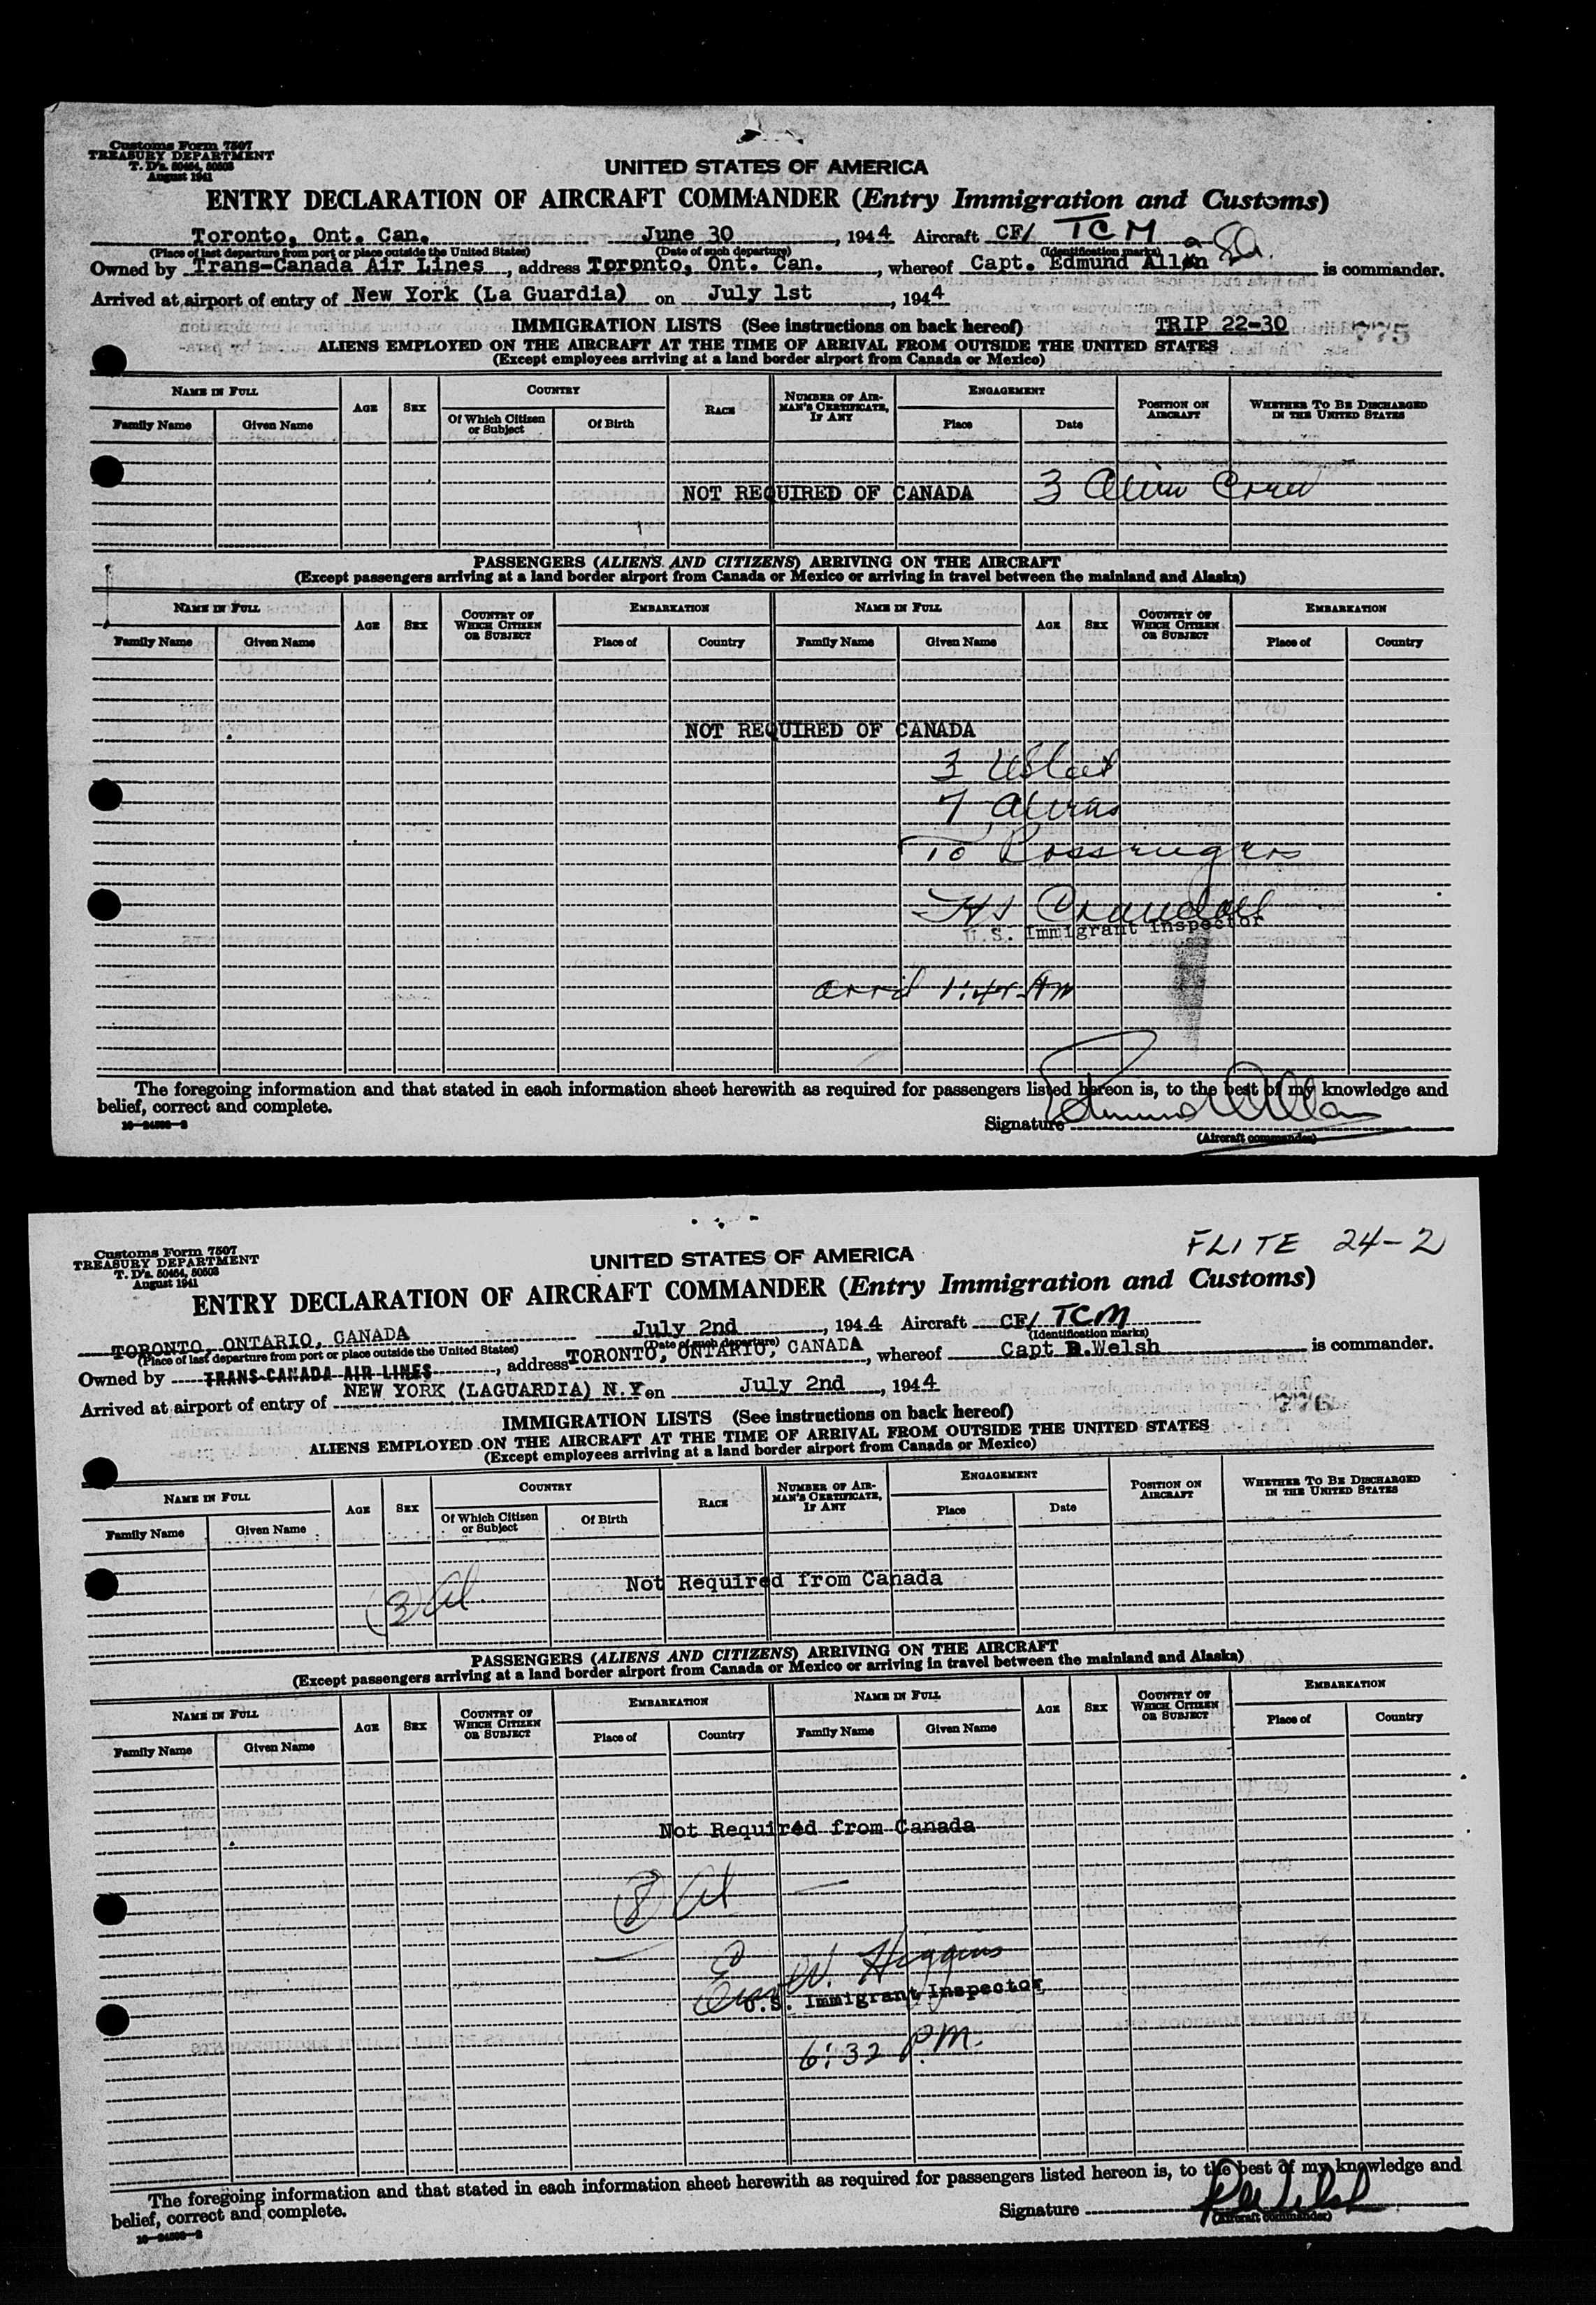 Customs Form 7507
TREASURY DEPARTMENT
T. D's. 50464, 50503
August 1941
UNITED STATES OF AMERICA
ENTRY DECLARATION OF AIRCRAFT COMMANDER (Entry Immigration and Customs)
Toronto, Ont. Can. June 30, 1944 Aircraft CF/ TCM
(Place of last departure from port or place outside the United States) (Date of such departure) (Identification marks)
Owned by Trans-Canada Air Lines, address Toronto, Ont. Can., whereof Capt. Edmund Allan is commander.
Arrived at airport of entry of New York (La Guardia) on July 1st, 1944
IMMIGRATION LISTS (See instructions on back hereof) TRIP 22-30 775
ALIENS EMPLOYED ON THE AIRCRAFT AT THE TIME OF ARRIVAL FROM OUTSIDE THE UNITED STATES
(Except employees arriving at a land border airport from Canada or Mexico)
NAME IN FULL AGE SEX COUNTRY RACE NUMBER OF AIRMAN'S CERTIFICATE, IF ANY ENGAGEMENT POSITION ON AIRCRAFT WHETHER TO BE DISCHARGED IN THE UNITED STATES
Family Name Given Name Of Which Citizen or Subject Of Birth Place Date
NOT REQUIRED OF CANADA 3 Alien Crew
PASSENGERS (ALIENS AND CITIZENS) ARRIVING ON THE AIRCRAFT
(Except passengers arriving at a land border airport from Canada or Mexico or arriving in travel between the mainland and Alaska)
NAME IN FULL AGE SEX COUNTRY OF WHICH CITIZEN OR SUBJECT EMBARKATION NAME IN FULL AGE SEX COUNTRY OF WHICH CITIZEN OR SUBJECT EMBARKATION
Family Name Given Name Place of Country Family Name Given Name Place of Country
NOT REQUIRED OF CANADA
3 USCit
7 Aliens
10 Passengers
HS Crandall
U.S. Immigrant Inspector
arrd 1:45 Am
The foregoing information and that stated in each information sheet herewith as required for passengers listed hereon is, to the best of my knowledge and
belief, correct and complete.
Signature Edmund Allan
(Aircraft commander)
16—24598-2
FLITE 24-2
Customs Form 7507
TREASURY DEPARTMENT
T. D's. 50464, 50503
August 1941
UNITED STATES OF AMERICA
ENTRY DECLARATION OF AIRCRAFT COMMANDER (Entry Immigration and Customs)
TORONTO, ONTARIO, CANADA July 2nd, 1944 Aircraft CF/ TCM
(Place of last departure from port or place outside the United States) (Date of such departure) (Identification marks)
Owned by TRANS-CANADA AIR LINES, address TORONTO, ONTARIO, CANADA, whereof Capt R.Welsh is commander.
Arrived at airport of entry of NEW YORK (LAGUARDIA) N.Y on July 2nd, 1944
776
IMMIGRATION LISTS (See instructions on back hereof)
ALIENS EMPLOYED ON THE AIRCRAFT AT THE TIME OF ARRIVAL FROM OUTSIDE THE UNITED STATES
(Except employees arriving at a land border airport from Canada or Mexico)
NAME IN FULL AGE SEX COUNTRY RACE NUMBER OF AIRMAN'S CERTIFICATE, IF ANY ENGAGEMENT POSITION ON AIRCRAFT WHETHER TO BE DISCHARGED IN THE UNITED STATES
Family Name Given Name Of Which Citizen or Subject Of Birth Place Date
Not Required from Canada
3 Al
PASSENGERS (ALIENS AND CITIZENS) ARRIVING ON THE AIRCRAFT
(Except passengers arriving at a land border airport from Canada or Mexico or arriving in travel between the mainland and Alaska)
NAME IN FULL AGE SEX COUNTRY OF WHICH CITIZEN OR SUBJECT EMBARKATION NAME IN FULL AGE SEX COUNTRY OF WHICH CITIZEN OR SUBJECT EMBARKATION
Family Name Given Name Place of Country Family Name Given Name Place of Country
Not Required from Canada
8 Al
W. Higgins
U.S. Immigrant Inspector
6:32 P.M.
The foregoing information and that stated in each information sheet herewith as required for passengers listed hereon is, to the best of my knowledge and
belief, correct and complete.
Signature R Welsh
(Aircraft commander)
16—24598-2